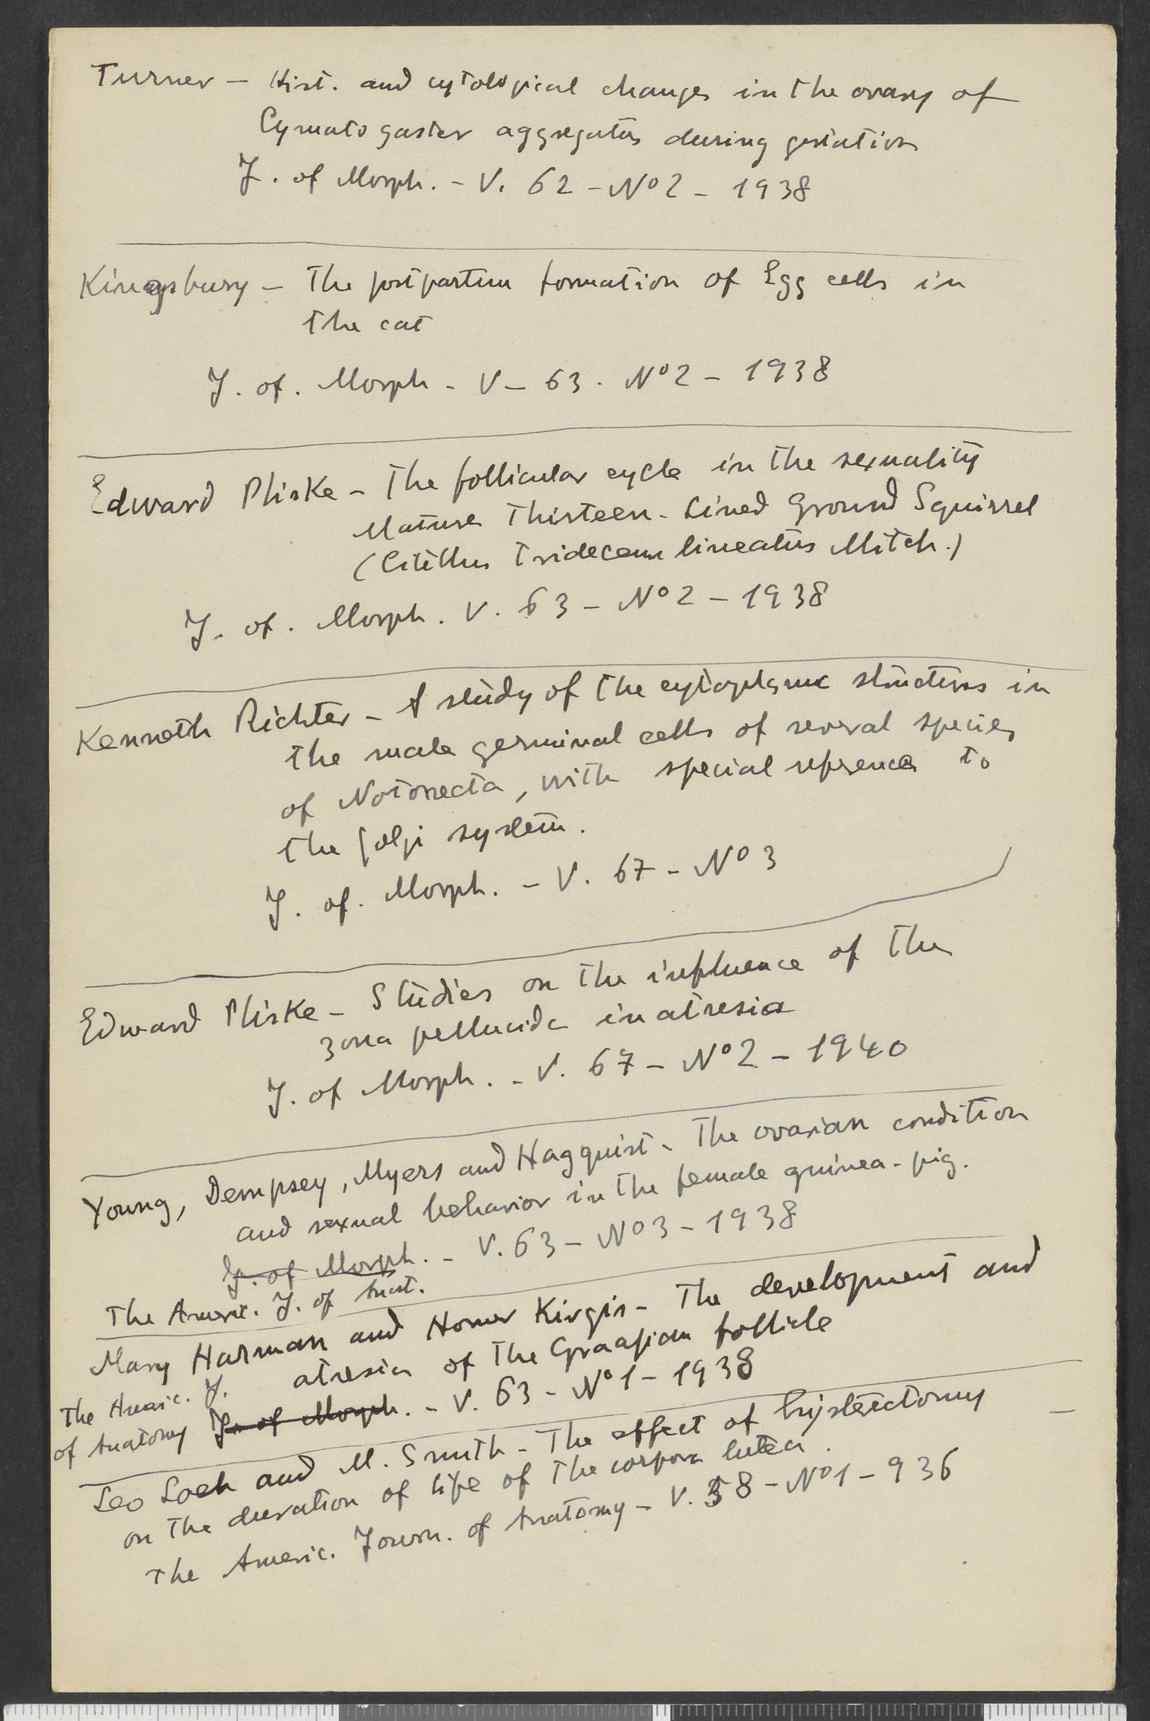 Turner – Hist. and cytological changes in the ovary of
Cymatogaster aggregatus during gestation
J. of Morph. – V. 62 – Nº 2 – 1938
Kingsbury – The postpartum formation of Egg cells in
the cat
J. of. Morph – V – 63. Nº 2 – 1938
Edward Pliske – The follicular cycle in the sexuality
Mature Thirteen-Lined Ground Squirrel
(Citellus tridecem lineatus Mitch.)
J. of. Morph. V. 63 – Nº 2 – 1938
Kenneth Richter – A study of the cytoplasmic structures in
the male germinal cells of several species
of Notonecta, with special reference to
the Golgi system.
J. of. Morph. – V. 67 – Nº 3
Edward Pliske – Studies on the influence of the
zona pellucida in atresia
J. of Morph. – V. 67 – Nº 2 – 1940
Young, Dempsey, Myers and Hagquist – The ovarian condition
and sexual behavior in the female guinea-pig.
J. of Morph. – V. 63 – Nº 3 – 1938
The Americ. J. of Anat.
Mary Harman and Homer Kirgis – The development and
atresia of the Graafian follicle
The Americ. J.
of Anatomy J. of Morph. – V. 63 – Nº 1 – 1938
Leo Loeb and M. Smith – The effect of hysterectomy
on the duration of life of the corpora lutea.
The Americ. Journ. of Anatomy – V. 58 – Nº 1 – 936